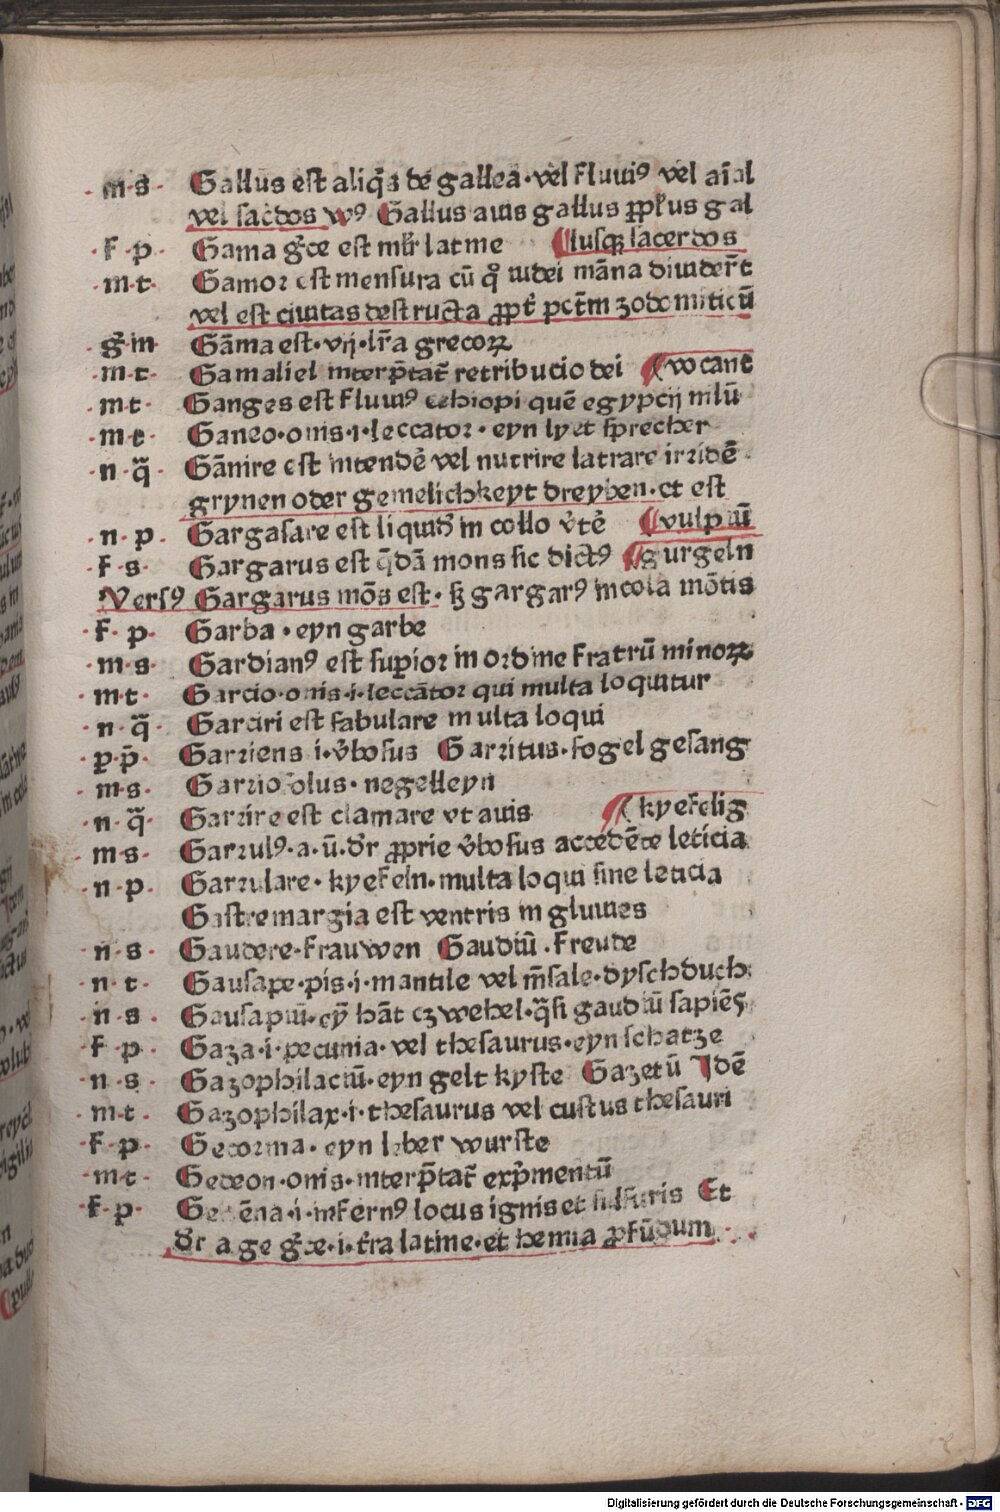 ·m·s· Gallus est aliq̄s de gallea·vel fluuiꝰ vel aīal
vel sac̄dos Wꝰ Gallus auis gallus ꝓpͥus gal
·f·p· Gama gr̄ce est mr̄ latine ¶lusqꝫ sacerdos
·m·t· Gamor est mensura cū qͦ iudei māna diuider̄t
vel est ciuitas destructa ꝓpt̄ pctm̄ zodomiticū
·gͥ·m· Gāma est·vij·lr̄a grecoꝝ
·m·t· Gamaliel interp̄tat̄ retribucio dei ¶vocant
·m·t· Ganges est fluuiꝰ ethiopi quē egypcij nilū
·m·t· Ganeo·onis·i·leccator·eyn lyet sprecher
·n·q̄· Gānire est intendē vel nutrire latrare irridē·
grynen oder gemelichkeyt dreyben·et est
·n·p· Gargasare est liquid̄ in collo v̄tē ¶vulpiū
·f·s· Gargarus est q̄dā mons sic dictꝰ ¶gurgeln
Versꝰ Gargarus mōs est·ꝫ gargarꝰ incola mōtis
·f·p· Garba·eyn garbe
·m·s· Gardianꝰ est supior in ordine fratrū minoꝝ
·m·t· Garcio·onis·i·leccātor qui multa loquitur
·n·q̄· Garriri est fabulare multa loqui
·p·p̄· Garriens i·v̄bosus Garritus·fogel gesang
·m·s· Garriofolus·negelleyn
·n·q̄· Garrire est clamare vt auis ¶kyefelig
·m·s· Garrulꝰ·a·ū·dr̄ ꝓprie v̄bosus accedēte leticia
·n·p· Garrulare·kyefeln·multa loqui sine leticia
Gastremargia est ventris ingluuies
·n·s· Gaudere·frauwen Gaudiū·freude
·n·t· Gausape·pis·i·mantile vel m̄sale·dyschduch·
·n·s· Gausapiū·eȳ hāt czwehel·q̄si gaudiū sapiēs
·f·p· Gaza·i·pecunia·vel thesaurus·eyn schatze
·n·s· Gazophilaciū·eyn gelt kyste Gazetū Idē
·m·t· Gazophilax·i·thesaurus vel custus thesauri
·f·p· Gecorma·eyn leber wurste
·m·t· Gedeon·onis·interp̄tat̄ exp̄mentū
·f·p· Gehēna·i·infernꝰ locus ignis et sulfuris Et
dr̄ a ge gr̄ce·i·tr̄a latine·et henna ꝓfūdum·
Digitalisierung gefördert durch die Deutsche Forschungsgemeinschaft - DFG